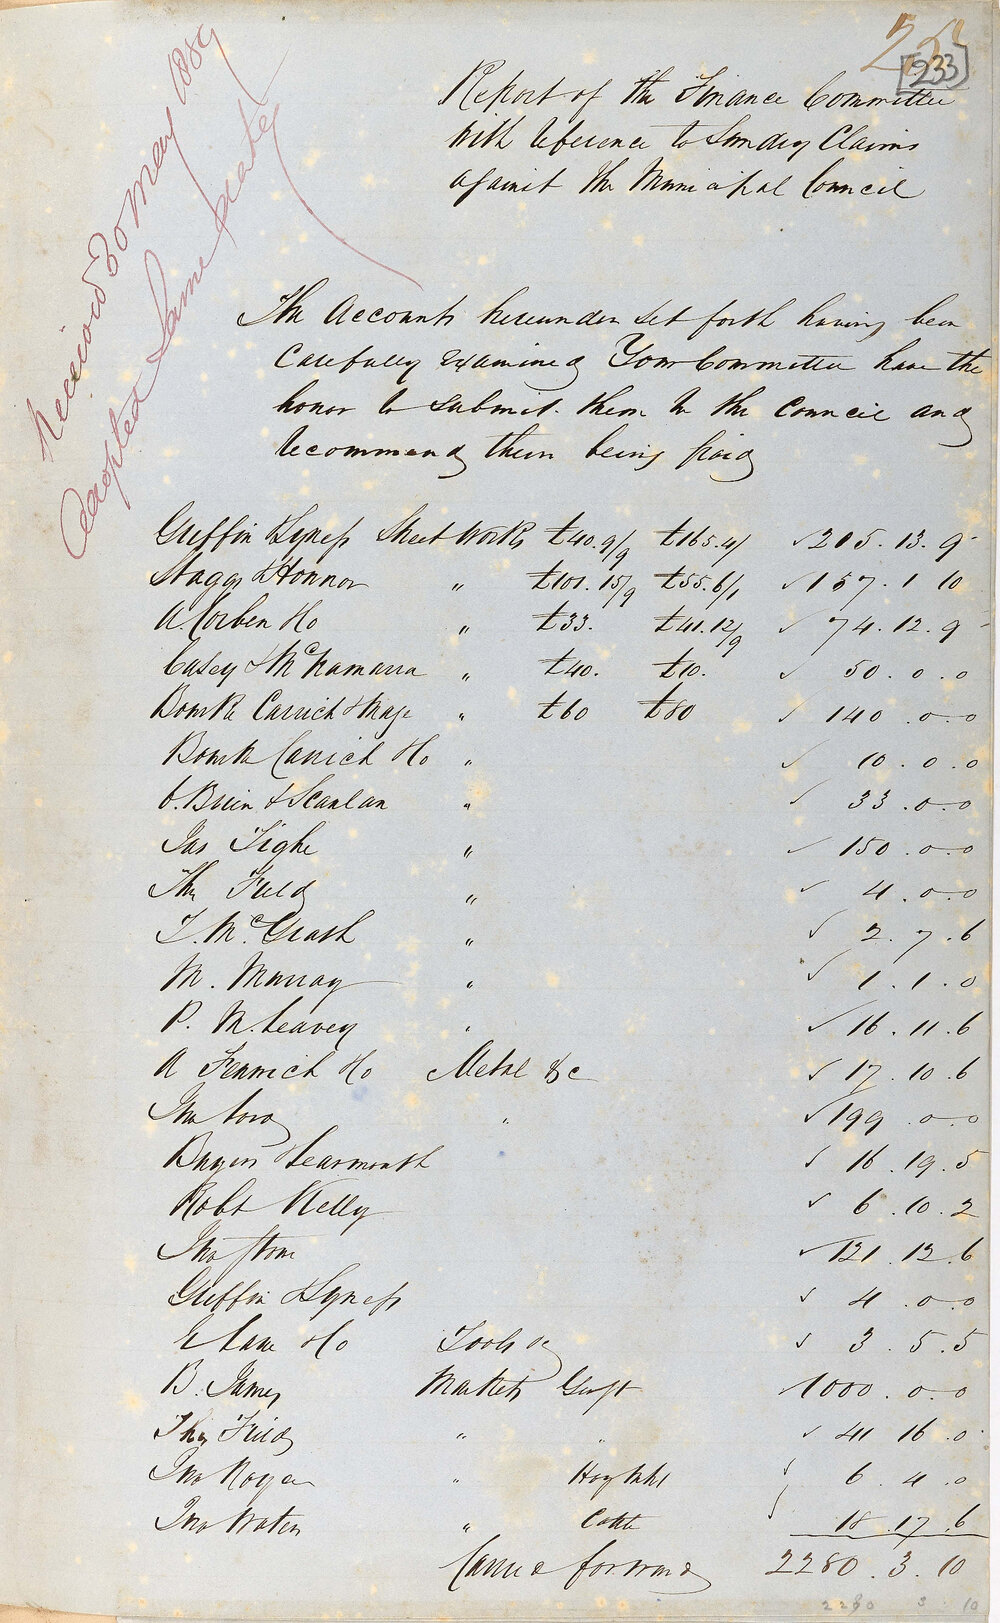 [233]
Report of the Finance Committee
with reference to Sundry Claims
against the Municipal Council
Received 30 May 1859
Adopted Same date
The Accounts hereunder set forth having been
Carefully examined Your Committee have the
honor to submit them to the Council and
recommend them being paid
Griffin & Hyness Street Works £40.9/9 £165.4/ ✓ 215.13.9
Staggs & Honnor " £101.15/9 £55.6/1 ✓ 157.1.10
A. Corben & Co " £33. £41.12/9 ✓ 74.12.9
Casey & McNamarra " £40. £10. ✓ 50.0.0
Bourke Carrick & Mage " £60 £80 ✓ 140.0.0
Bourke Carrick & Co " ✓ 10.0.0
O.Brien & Scanlan " ✓ 33.0.0
Jas Tighe " ✓ 150.0.0
Thos Field " ✓ 4.0.0
T. McGrath " ✓ 2.7.6
M. Murray " ✓ 1.1.0
P. McLeavey " ✓ 16.11.6
A Fenwick & Co Metal &c ✓ 17.10.6
Jno " ✓ 199.0.0
Learmonth ✓ 16.19.5
Robt Kelly ✓ 6.10.2
Jno Stone ✓ 121.12.6
Griffin & Hyness ✓ 4.0.0
E Lane & Co Tools &c ✓ 3.5.5
B. James Markets 1000.0.0
Thos Field " " ✓ 41.16.0
Jno " Hay ✓ 6.4.0
Jno " Cattle 18.17.6
Carried forward 2280.3.10
2280 3 10